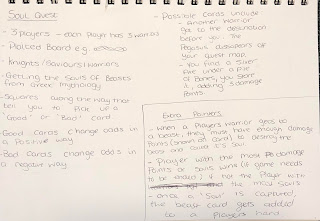 Soul Quest
- 3 players - each player has 3 warriors
- Mallard Board e.g.
- Knights/Saviours/Warriors
- Getting the Souls Of Beasts
from Greek Mythology
- Squares along the way that
tell you to Pick up a
"Good" or "Bad" card.
- Good cards change odds in
a Positive way
- Bad Cards change odds in
a Negative way.
- Possible cards include
- Another warrior
got to the destination
before you. The
Pegasus disapears off
your quest map
- You find a silver
axe under a pile
of Bones, you store
it, adding 3 damage
Points.
Extra Pointers
- When a Players Warrior goes to
a beast, they must have enough damage
Points (shown on card) to destroy the
beast and collect it's Soul.
- Player with the most
Points or Souls wins (if game needs
to be ended) if not the Player with
the most Souls
- once a 'Soul' is captured,
the beast card gets added
to a Players hand